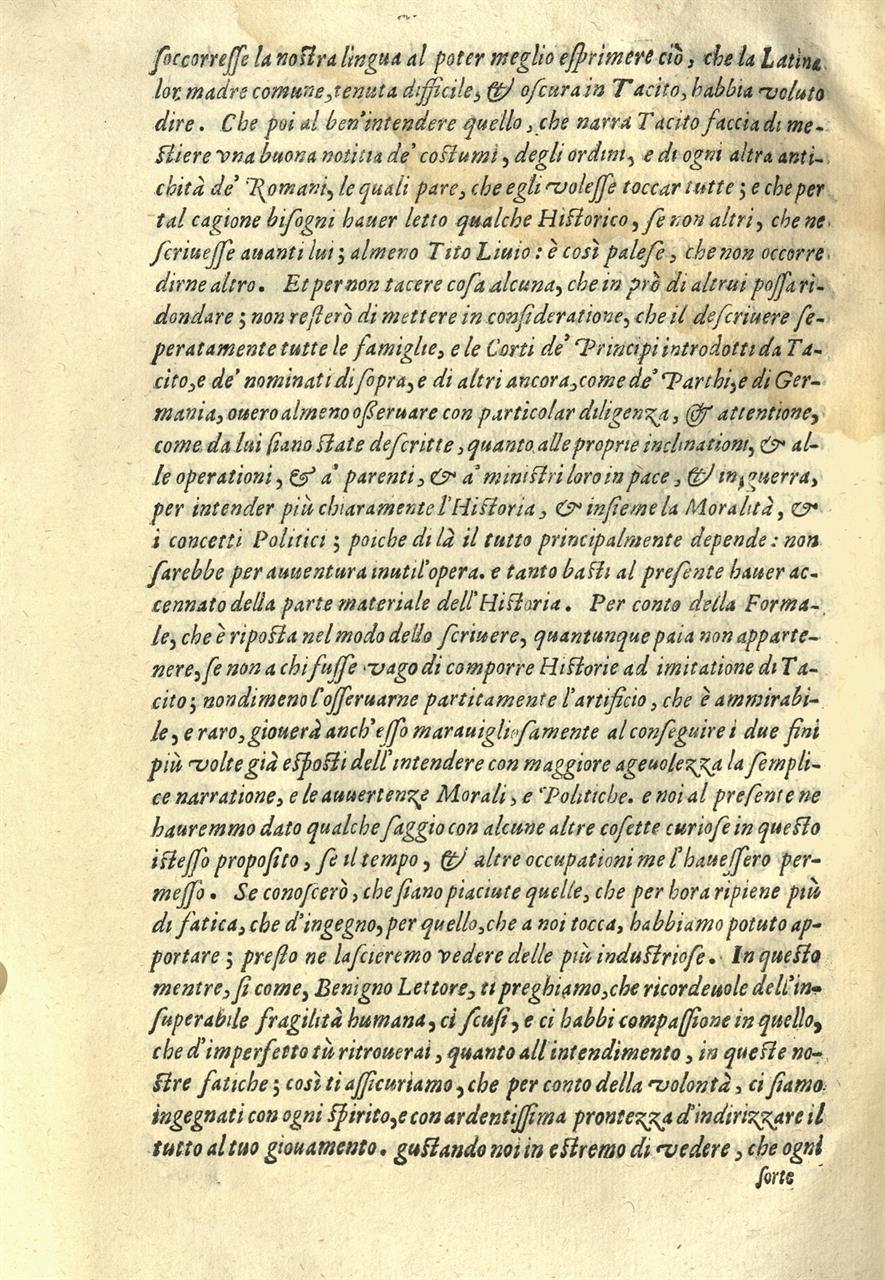 soccorresse la nostra lingua al poter meglio esprimere ciò, che la Latina
lor madre comune, tenuta difficile, & oscura in Tacito, habbia voluto
dire. Che poi al ben'intendere quello, che narra Tacito faccia di me-
stiere vna buona notitia de' costumi, degli ordini, e di ogni altra anti-
chità de' Romani, le quali pare, che egli volesse toccar tutte; e che per
tal cagione bisogni hauer letto qualche Historico, se non altri, che ne
scriuesse auanti lui; almeno Tito Liuio: è così palese, che non occorre
dirne altro. Et per non tacere cosa alcuna, che in prò di altrui possa ri-
dondare; non resterò di mettere in consideratione, che il descriuere se-
peratamente tutte le famiglie, e le Corti de' Principi introdotti da Ta-
cito, e de' nominati di sopra, e di altri ancora, come de' Parthi, e di Ger-
mania, ouero almeno osseruare con particolar diligenza, & attentione,
come da lui siano state descritte, quanto alle proprie inclinationi, & al-
le operationi, & a' parenti, & a' ministri loro in pace, & in guerra,
per intender più chiaramente l'Historia, & insieme la Moralità, &
i concetti Politici; poiche di là il tutto principalmente depende: non
sarebbe per auuentura inutil'opera. e tanto basti al presente hauer ac-
cennato della parte materiale dell'Historia. Per conto della Forma-
le, che è riposta nel modo dello scriuere, quantunque paia non apparte-
nere, se non a chi fusse vago di comporre Historie ad imitatione di Ta-
cito; nondimeno l'osseruarne partitamente l'artificio, che è ammirabi-
le, e raro, giouerà anch'esso marauigliosamente al conseguire i due fini
più volte già esposti dell'intendere con maggiore ageuolezza la sempli-
ce narratione, e le auuertenze Morali, e Politiche. e noi al presente ne
hauremmo dato qualche saggio con alcune altre cosette curiose in questo
istesso proposito, se il tempo, & altre occupationi me l'hauessero per-
messo. Se conoscerò, che siano piaciute quelle, che per hora ripiene più
di fatica, che d'ingegno, per quello, che a noi tocca, habbiamo potuto ap-
portare; presto ne lascieremo vedere delle più industriose. In questo
mentre, si come, Benigno Lettore, ti preghiamo, che ricordeuole dell'in-
superabile fragilità humana, ci scusi, e ci habbi compassione in quello,
che d'imperfetto tù ritrouerai, quanto all'intendimento, in queste no-
stre fatiche; così ti assicuriamo, che per conto della volontà, ci siamo
ingegnati con ogni spirito, e con ardentissima prontezza d'indirizzare il
tutto al tuo giouamento. gustando noi in estremo di vedere, che ogni
sorte